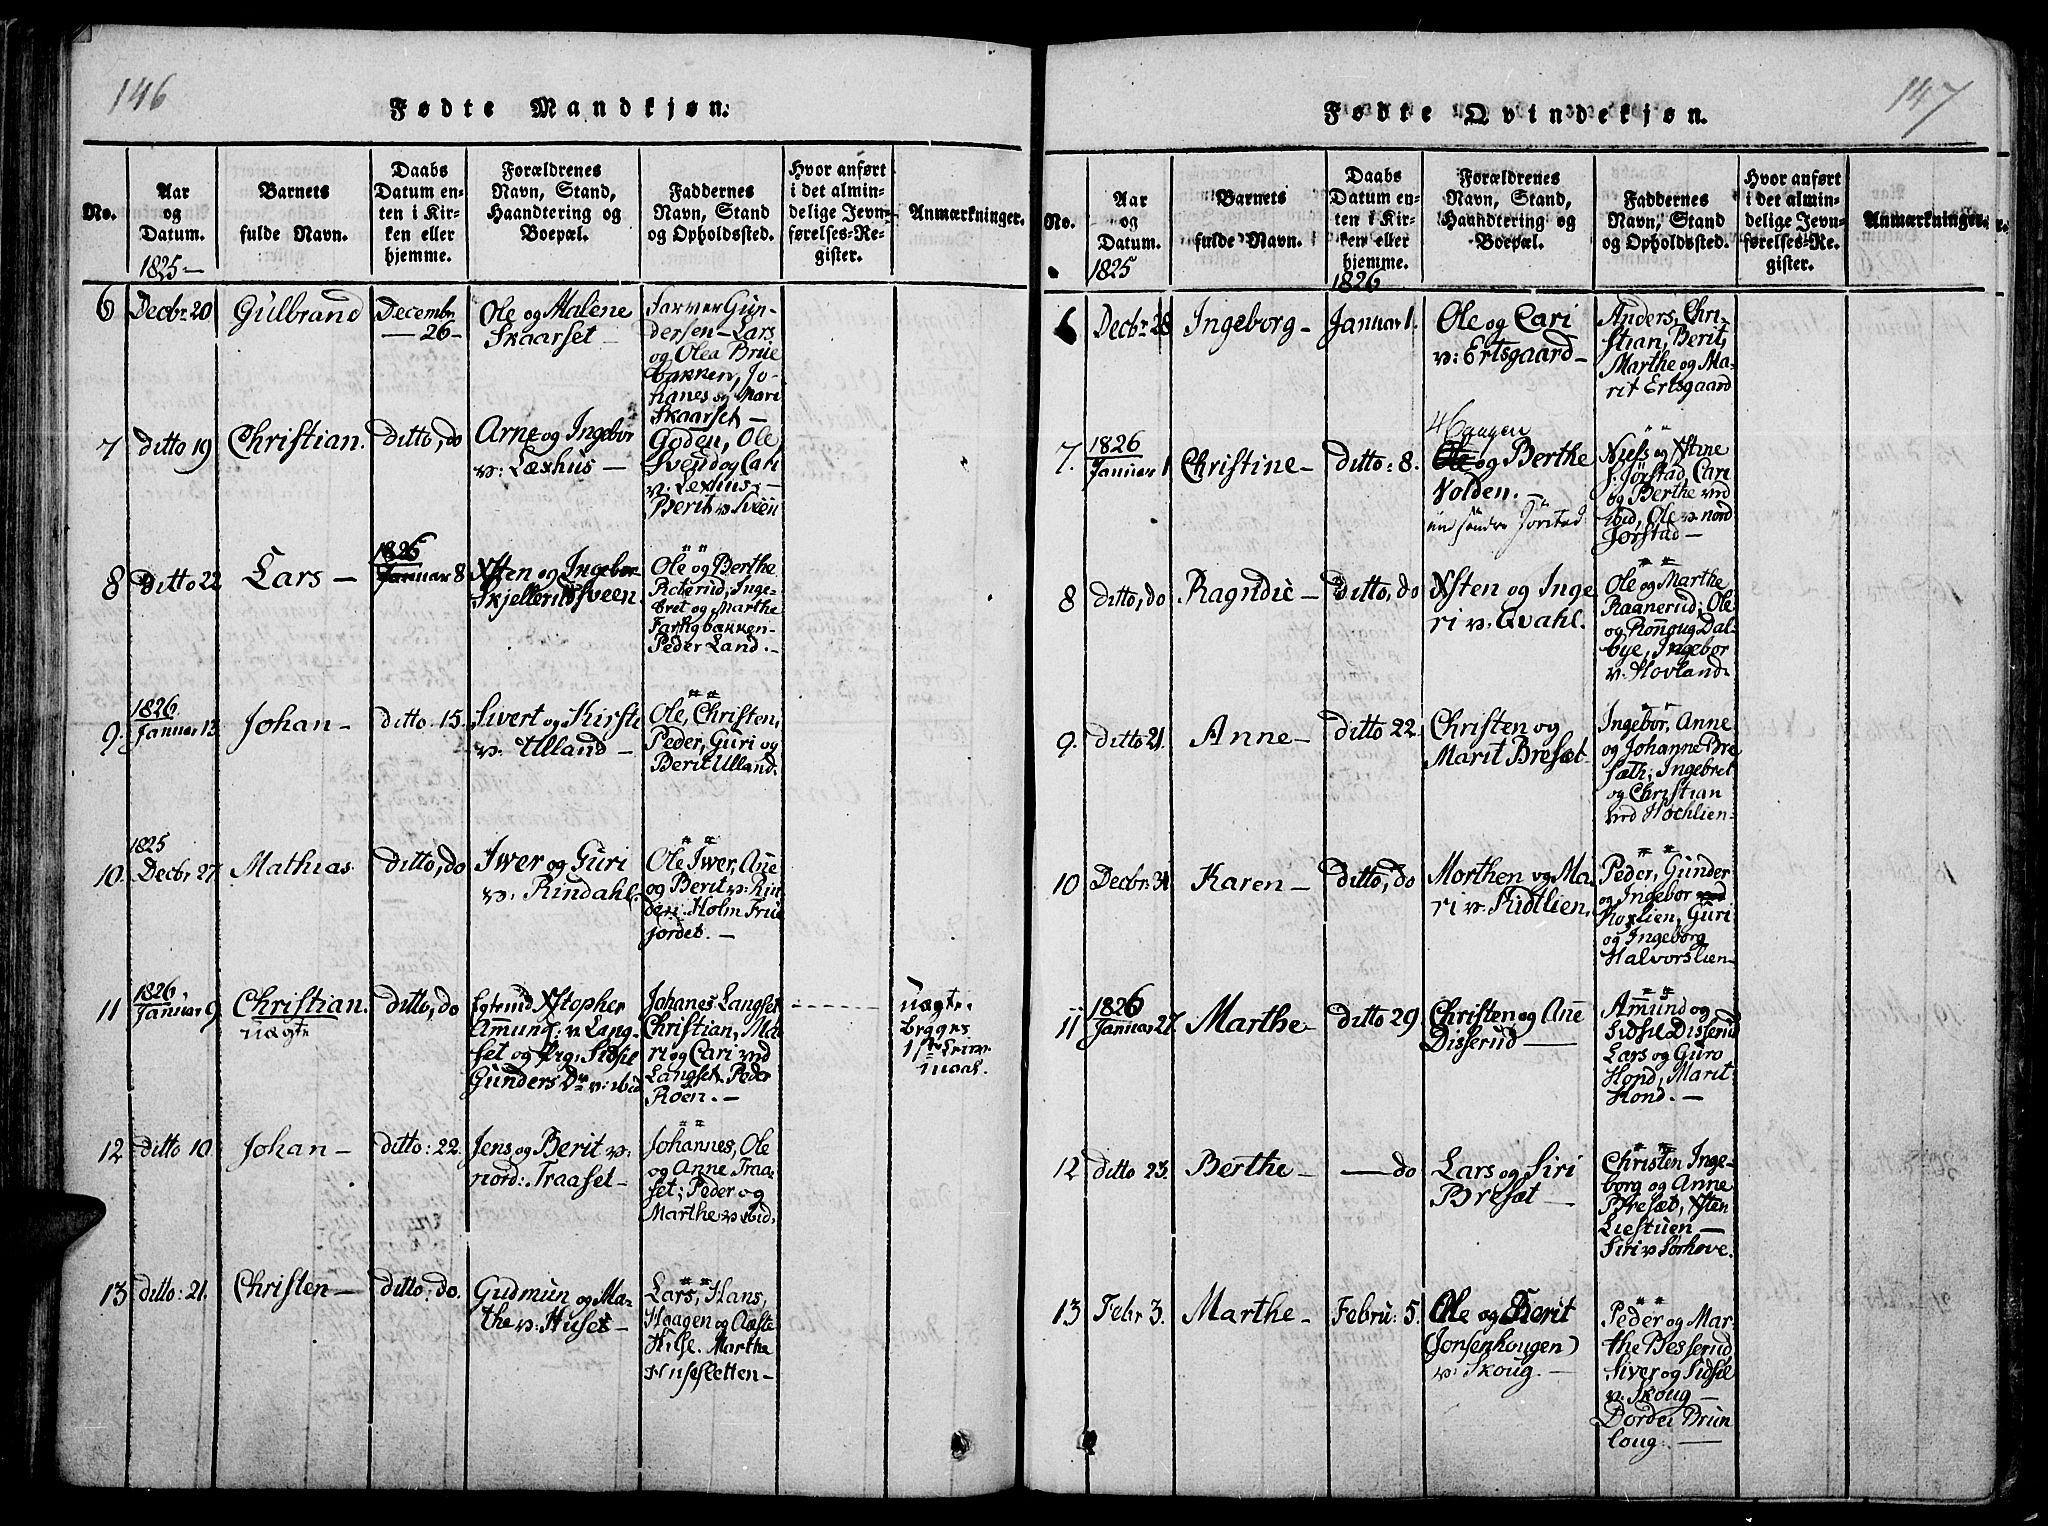 146
Fødte Mandkjøn.
No.
Aar
og
Datum.
1825 —
Barnets
fulde Navn.
Daabs
Datum en-
ten i Kir-
ken eller
hjemme.
Forældrenes
Navn, Stand,
Haandtering og
Boepæl.
Faddernes
Navn, Stand
og Opholdssted.
Hvor anført
i det almin-
delige Jevn-
førelses-Re-
gister.
Anmærkninger.
6
Decbr. 20
Gulbrand
Decembr
— 26 —
Ole og Malene
Skaarset —
Farver Gun-
dersen — Lars
og Olea Brue
bakken, Jo-
hanes og Mari
Skaarset —
7
ditto 19
Christian.
ditto, do
Arne og Ingebor
v: Læxhus —
Goden, Ole
Svend og Cari
v. Lexhus —
Berit v Sveen
8
ditto 22
Lars —
1826
Januar 8
Xsten og Ingebor
Skjellerudsveen
Ole og Berthe
Roterud, Inge-
bret og Marthe
bakken —
Peder Land. —
9.
1826
Januar 13
Johan —
ditto: 15.
Sivert og Kirsti
v: Ulland —
Ole, Christen,
Peder, Guri og
Berit Ulland.
10.
1825
Decbr 27.
Mathias
ditto, do
Iwer og Guri
v: Rindahl.
Ole Iwer, Añe
og Berit v: Rin
den. Holm Frue
jordet. —
11
1826
Januar 9
Christian.
uægte
ditto, do
Xstopher
Amund: v Lang-
set og Pig: Sidsel
Gunders Dr v: ibid
Johanes Langset
Christian, Ma
ri og Cari ved
Langset. Peder
Roen. —
uægte
begges
1ste Leier
maal.
12
ditto 10
Johan —
ditto: 22.
Jens og Berit v:
nord: Traaset —
Johannes, Ole
og Anne Traa-
set; Peder og
Marthe v ibid.
13
ditto: 21.
Christen —
ditto: do.
Gudmun og Ma-
the v: Huset —
Lars, Hans,
Haagen og Aaste
Hilse. Marthe
Husesletten —
147
Fødte Qvindekjøn.
No.
Aar
og
Datum.
1825
Barnets
fulde Navn.
Daabs
Datum en-
ten i Kir-
ken eller
hjemme.
1826
Forældrenes
Navn, Stand,
Haandtering og
Boepæl.
Faddernes
Navn, Stand
og Opholdssted.
Hvor anført
i det almin-
delige Jevn-
førelses-Re-
gister.
Anmærkninger.
6
Decbr: 28
Ingeborg —
Januar 1.
Ole og Cari
v: Ertsgaard —
Anders, Chri-
stian, Berit,
Marthe og Ma-
rit Ertsgaard
7.
1826
Januar 1
Christine —
Ditto: 8.
Ole og Berthe
Volden. —
søndre Jörstad
Niels og Xstine
s. Jørstad, Cari
og Berthe ved
ibid, Ole v: nord
Jorstad —
8
ditto, do
Ragndie —
ditto, do
Xsten og Inge
ri v: Qvahl.
Ole og Marthe
Raanerud; Ole
og Roñoug Dal-
bye, Ingebor
v: Hovland.
9.
ditto 21.
Anne —
ditto 22.
Christen og
Marit Bresæt —
Ingebor, Anne
og Johanne Bre
sæth; Ingebret
og Christian
ved Hochlien —
10
Decbr. 31
Karen —
ditto, do
Morthen og Ma-
ri v: Kidtlien.
Peder, Gunder
og Ingebor ved
Hoxlien, Guri
og Ingeborg
Halvorslien —
11
1826
Januar 27.
Marthe —
ditto 29
Christen og Añe
Disserud —
Amund og
Sidsil Disserud
Lars og Guro
Hond, Marit
Hond. —
12
ditto 23.
Berthe —
— do
Lars og Siri
Bresæt —
Christen Inge-
borg og Anne
Bresæt, Xsten
Liestuen —
Siri v Sorhove.
13
Febr 3.
Marthe —
Febru: 5.
Ole og Berit
(Jonsenhougen)
v: Skoug. —
Peder og Mar-
the Besserud
Siver og Sidsil
v: Skoug —
Dordei Brun
loug: —